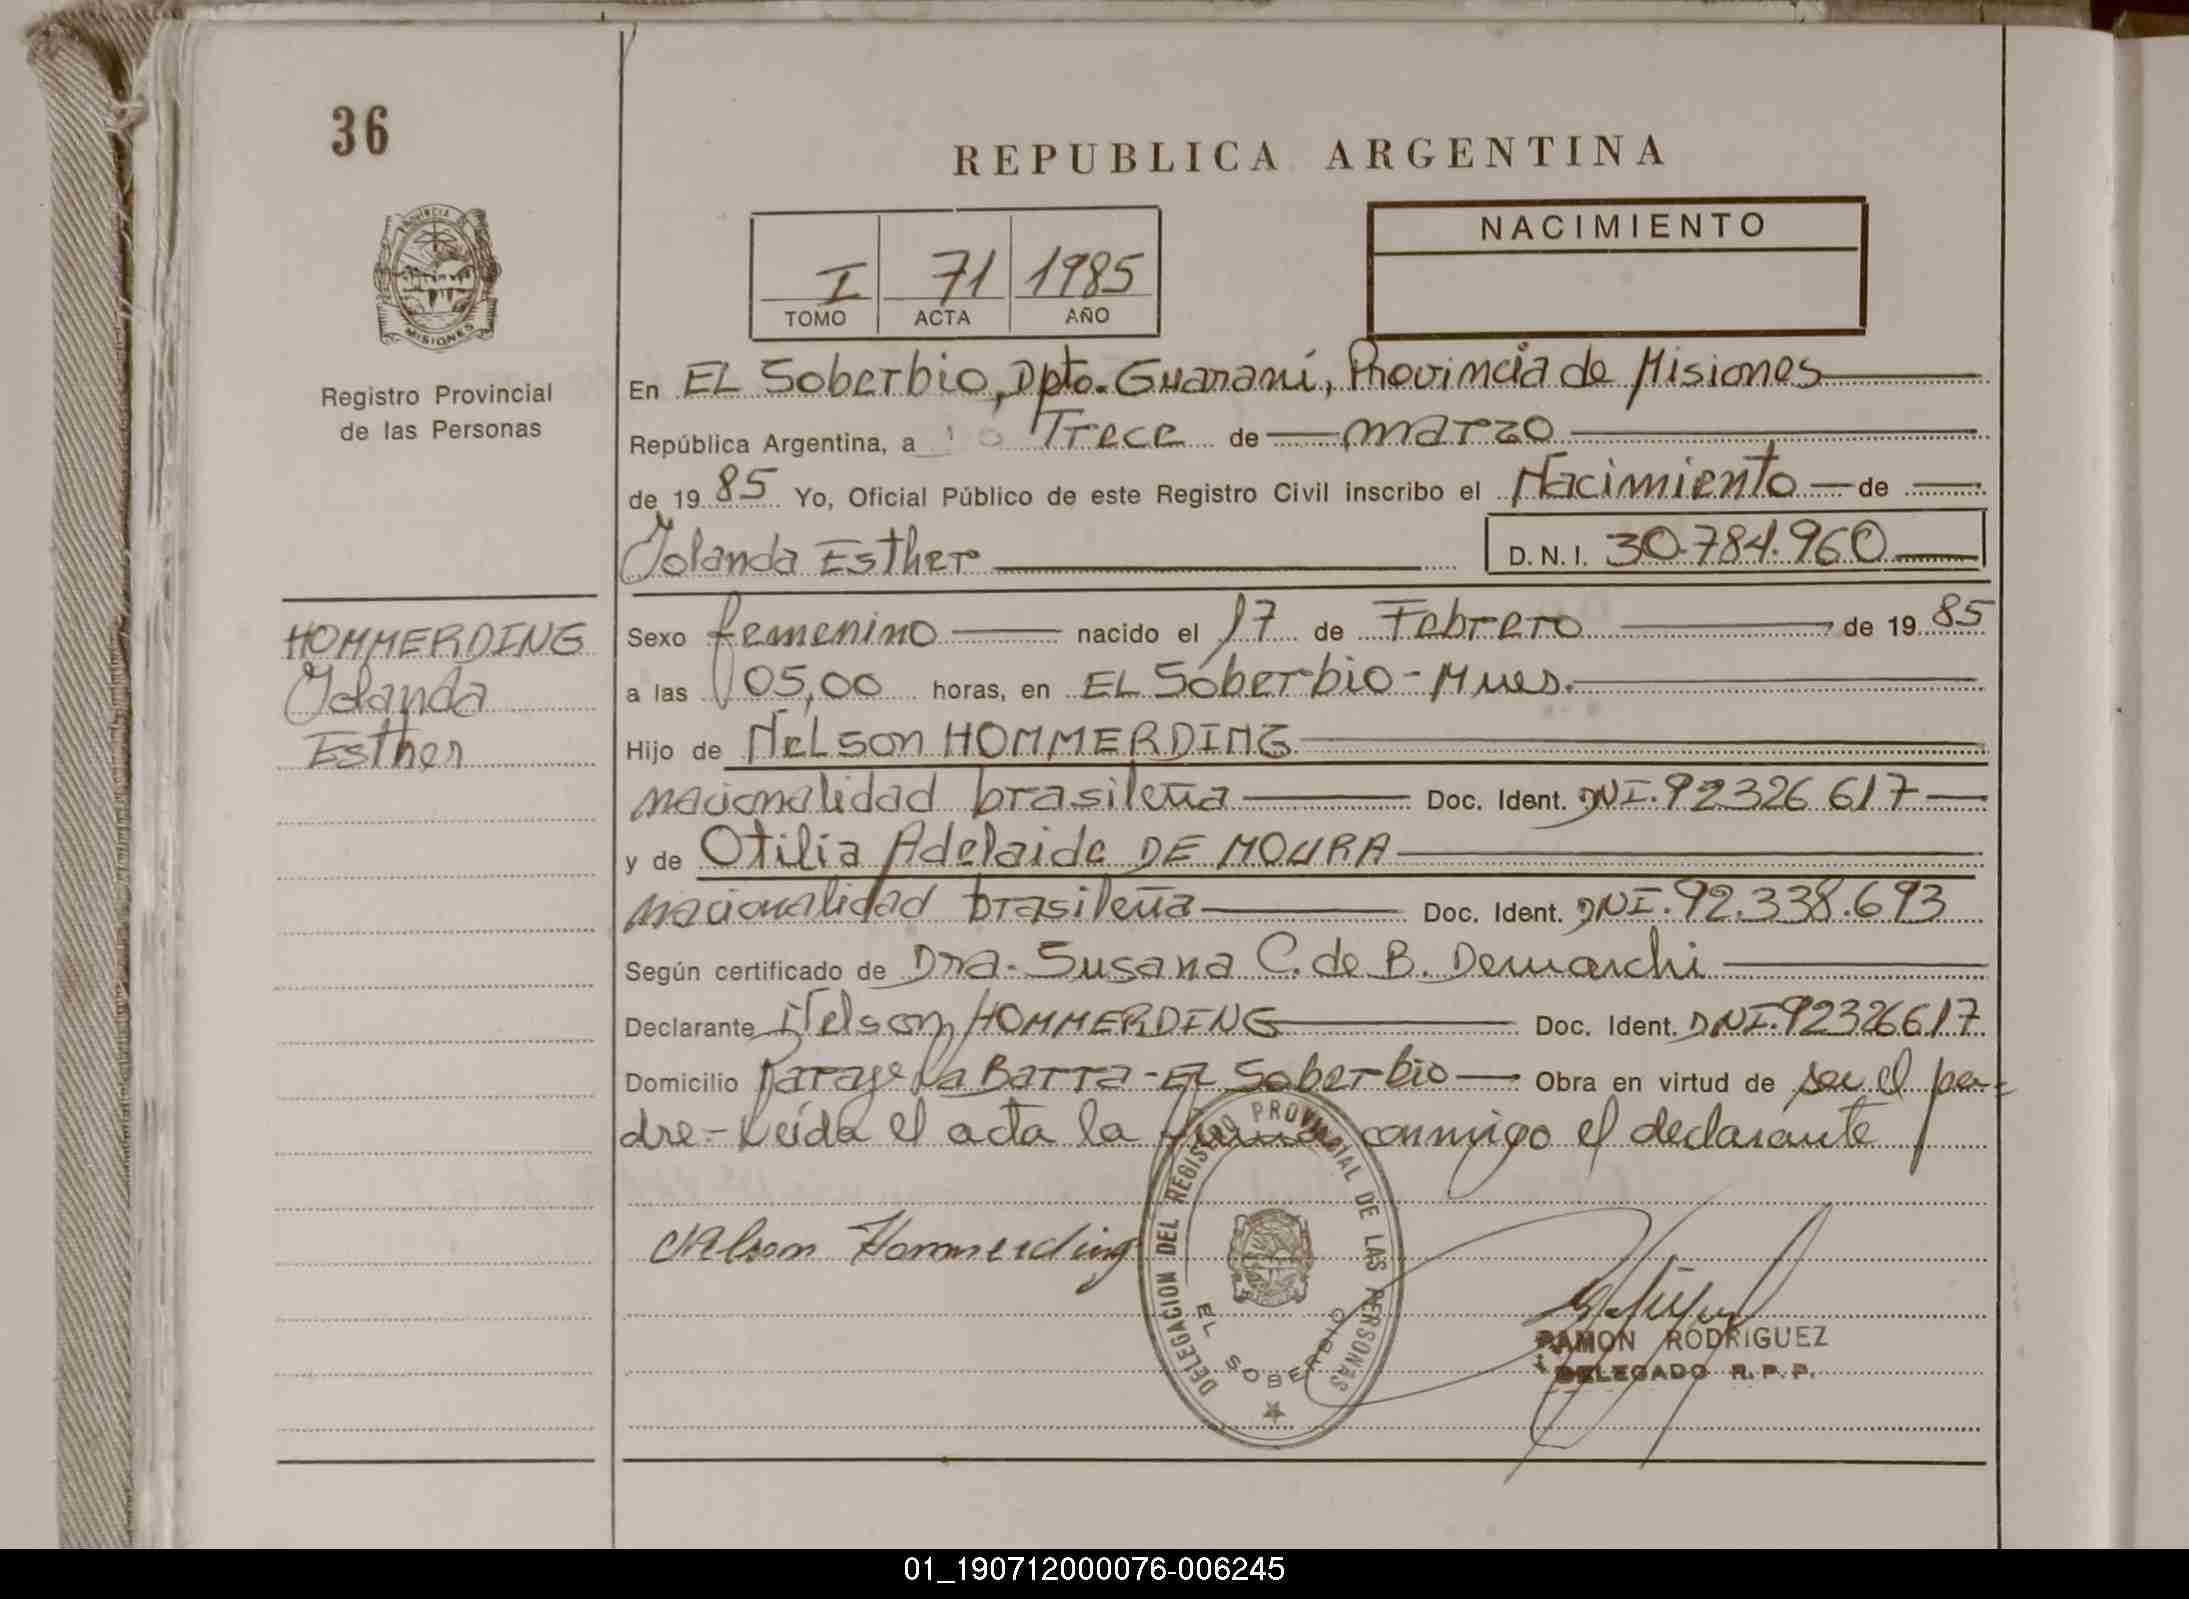 36
REPUBLICA ARGENTINA
NACIMIENTO
I 71 1985
TOMO ACTA AÑO
PROVINCIA DE
MISIONES
Registro Provincial
de las Personas
En EL Soberbio, Dpto. Guaraní, Provincia de Misiones
República Argentina, a Trece de marzo
de 1985 Yo, Oficial Público de este Registro Civil inscribo el Nacimiento de
Yolanda Esther D.N.I. 30.784.960
HOMMERDING
Yolanda
Esther
Sexo femenino nacido el 17 de Febrero de 1985
a las 05,00 horas, en EL Soberbio - Mnes.
Hijo de Nelson HOMMERDING
nacionalidad brasileña Doc. Ident. DNI. 92326617
y de Otilia Adelaide DE MOURA
nacionalidad brasileña Doc. Ident. DNI. 92.338.693
Según certificado de Dra. Susana C. de B. Demarchi
Declarante Nelson HOMMERDING Doc. Ident. DNI. 92326617
Domicilio Paraje La Barra - El Soberbio Obra en virtud de ser el pa-
dre - Leída el acta la firma conmigo el declarante
Nelson Hommerding
DELEGACION DEL REGISTRO PROVINCIAL DE LAS PERSONAS
EL SOBERBIO
RAMON RODRIGUEZ
DELEGADO R.P.P.
01_190712000076-006245